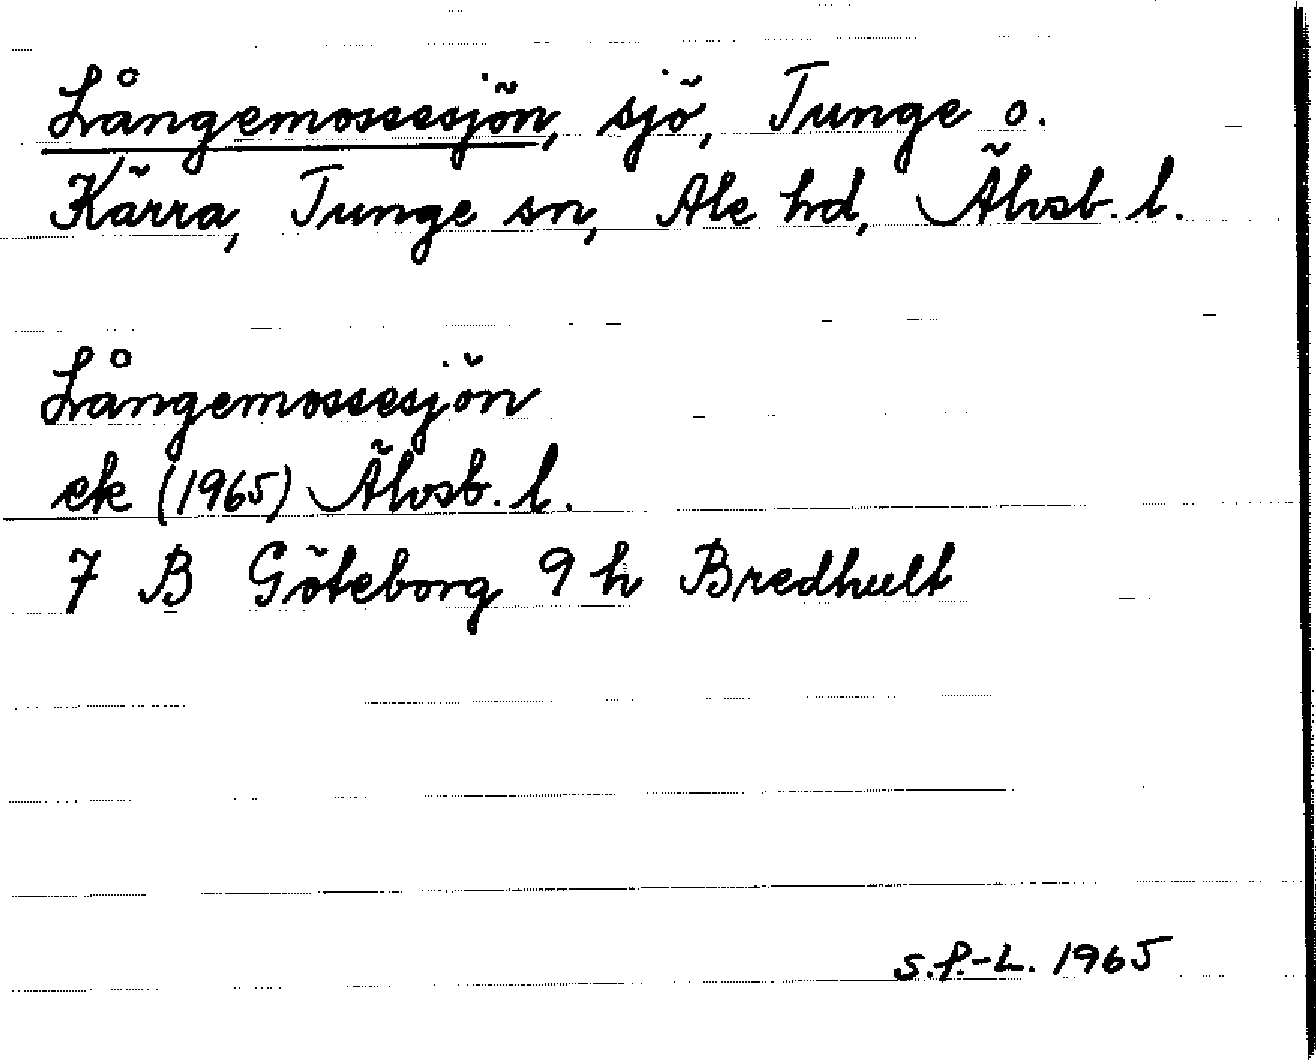 Långemossesjön, sjö, Tunge o.
Kärra, Tunge sn, Ale hd, Älvsb. l.
Långemossesjön
ek (1965) Älvsb. l.
7 B Göteborg 9 h Bredhult
S.F.-L. 1965